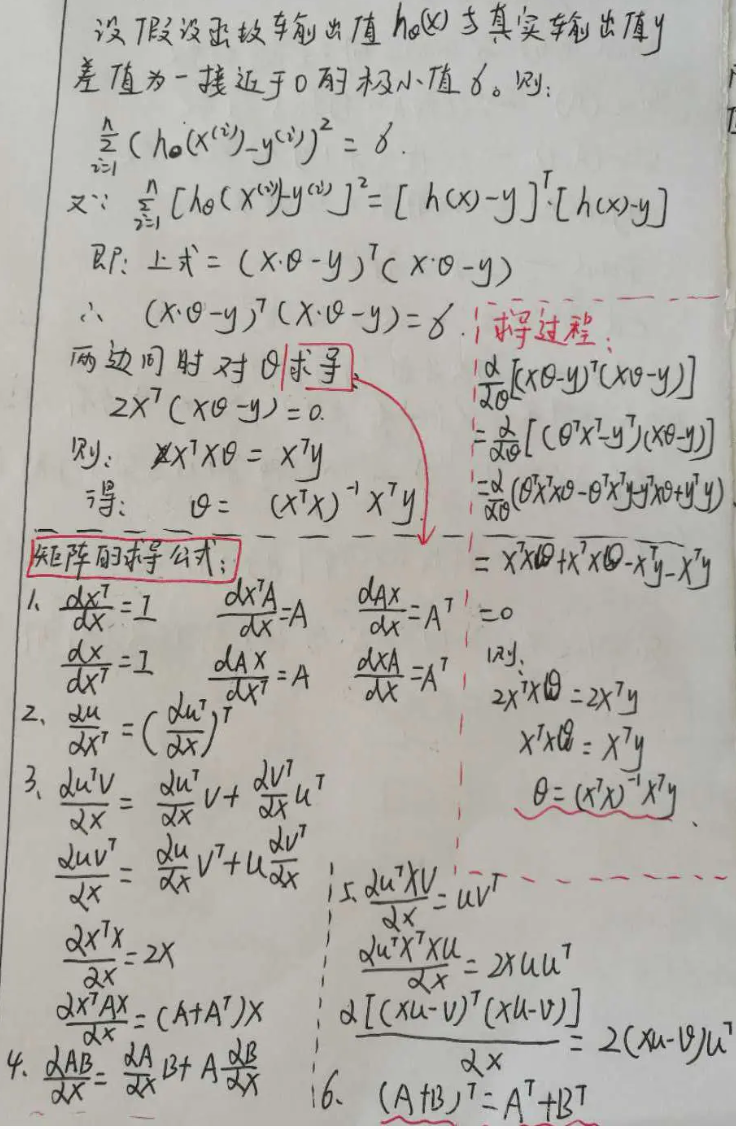 设假设函数输出值 hθ(x) 与真实输出值y
差值为一接近于0的极小值 δ。则:
n Σ i=1 (hθ(x⁽ⁱ⁾)-y⁽ⁱ⁾)² = δ.
又∵ n Σ i=1 [hθ(x⁽ⁱ⁾)-y⁽ⁱ⁾]² = [h(x)-y]ᵀ·[h(x)-y]
即: 上式 = (X·θ-y)ᵀ(X·θ-y)
∴ (X·θ-y)ᵀ(X·θ-y)=δ.
两边同时对θ求导.
2Xᵀ(Xθ-y)=0.
则: XᵀXθ = Xᵀy
得: θ = (XᵀX)⁻¹Xᵀy.
求导过程:
∂/∂θ[(Xθ-y)ᵀ(Xθ-y)]
=∂/∂θ[(θᵀXᵀ-yᵀ)(Xθ-y)]
=∂/∂θ(θᵀXᵀXθ-θᵀXᵀy-yᵀXθ+yᵀy)
= XᵀXθ+XᵀXθ-Xᵀy-Xᵀy
=0
则:
2XᵀXθ = 2Xᵀy
XᵀXθ = Xᵀy
θ=(XᵀX)⁻¹Xᵀy
矩阵的求导公式:
1、 dxᵀ/dx = I dxᵀA/dx = A dAx/dx = Aᵀ
dx/dxᵀ = I dAx/dxᵀ = A dxA/dx = Aᵀ
2、 ∂u/∂xᵀ = (∂uᵀ/∂x)ᵀ
3、 ∂uᵀv/∂x = ∂uᵀ/∂x v + ∂vᵀ/∂x uᵀ
∂uvᵀ/∂x = ∂u/∂x vᵀ + u ∂vᵀ/∂x
∂xᵀx/∂x = 2x
∂xᵀAx/∂x = (A+Aᵀ)x
4、 ∂AB/∂x = ∂A/∂x B + A ∂B/∂x
5、 ∂uᵀXv/∂X = uvᵀ
∂uᵀXᵀXu/∂X = 2Xuuᵀ
∂[(Xu-v)ᵀ(Xu-v)]/∂X = 2(Xu-v)uᵀ
6、 (A+B)ᵀ = Aᵀ+Bᵀ